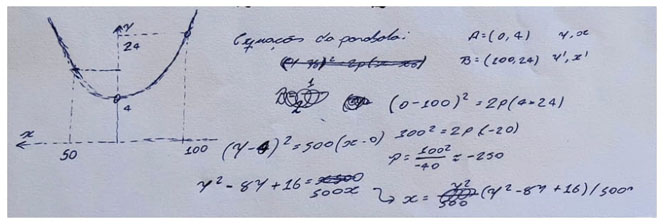 y
24
4
x
50
100
Equações da parabola:
A=(0,4) y,x
B=(100,24) y',x'
(0-100)² = 2p(4-24)
(y-4)² = 500(x-0)
100² = 2p(-20)
p = 100²/-40 = -250
y² - 8y + 16 = 500x
x = (y² - 8y + 16)/500